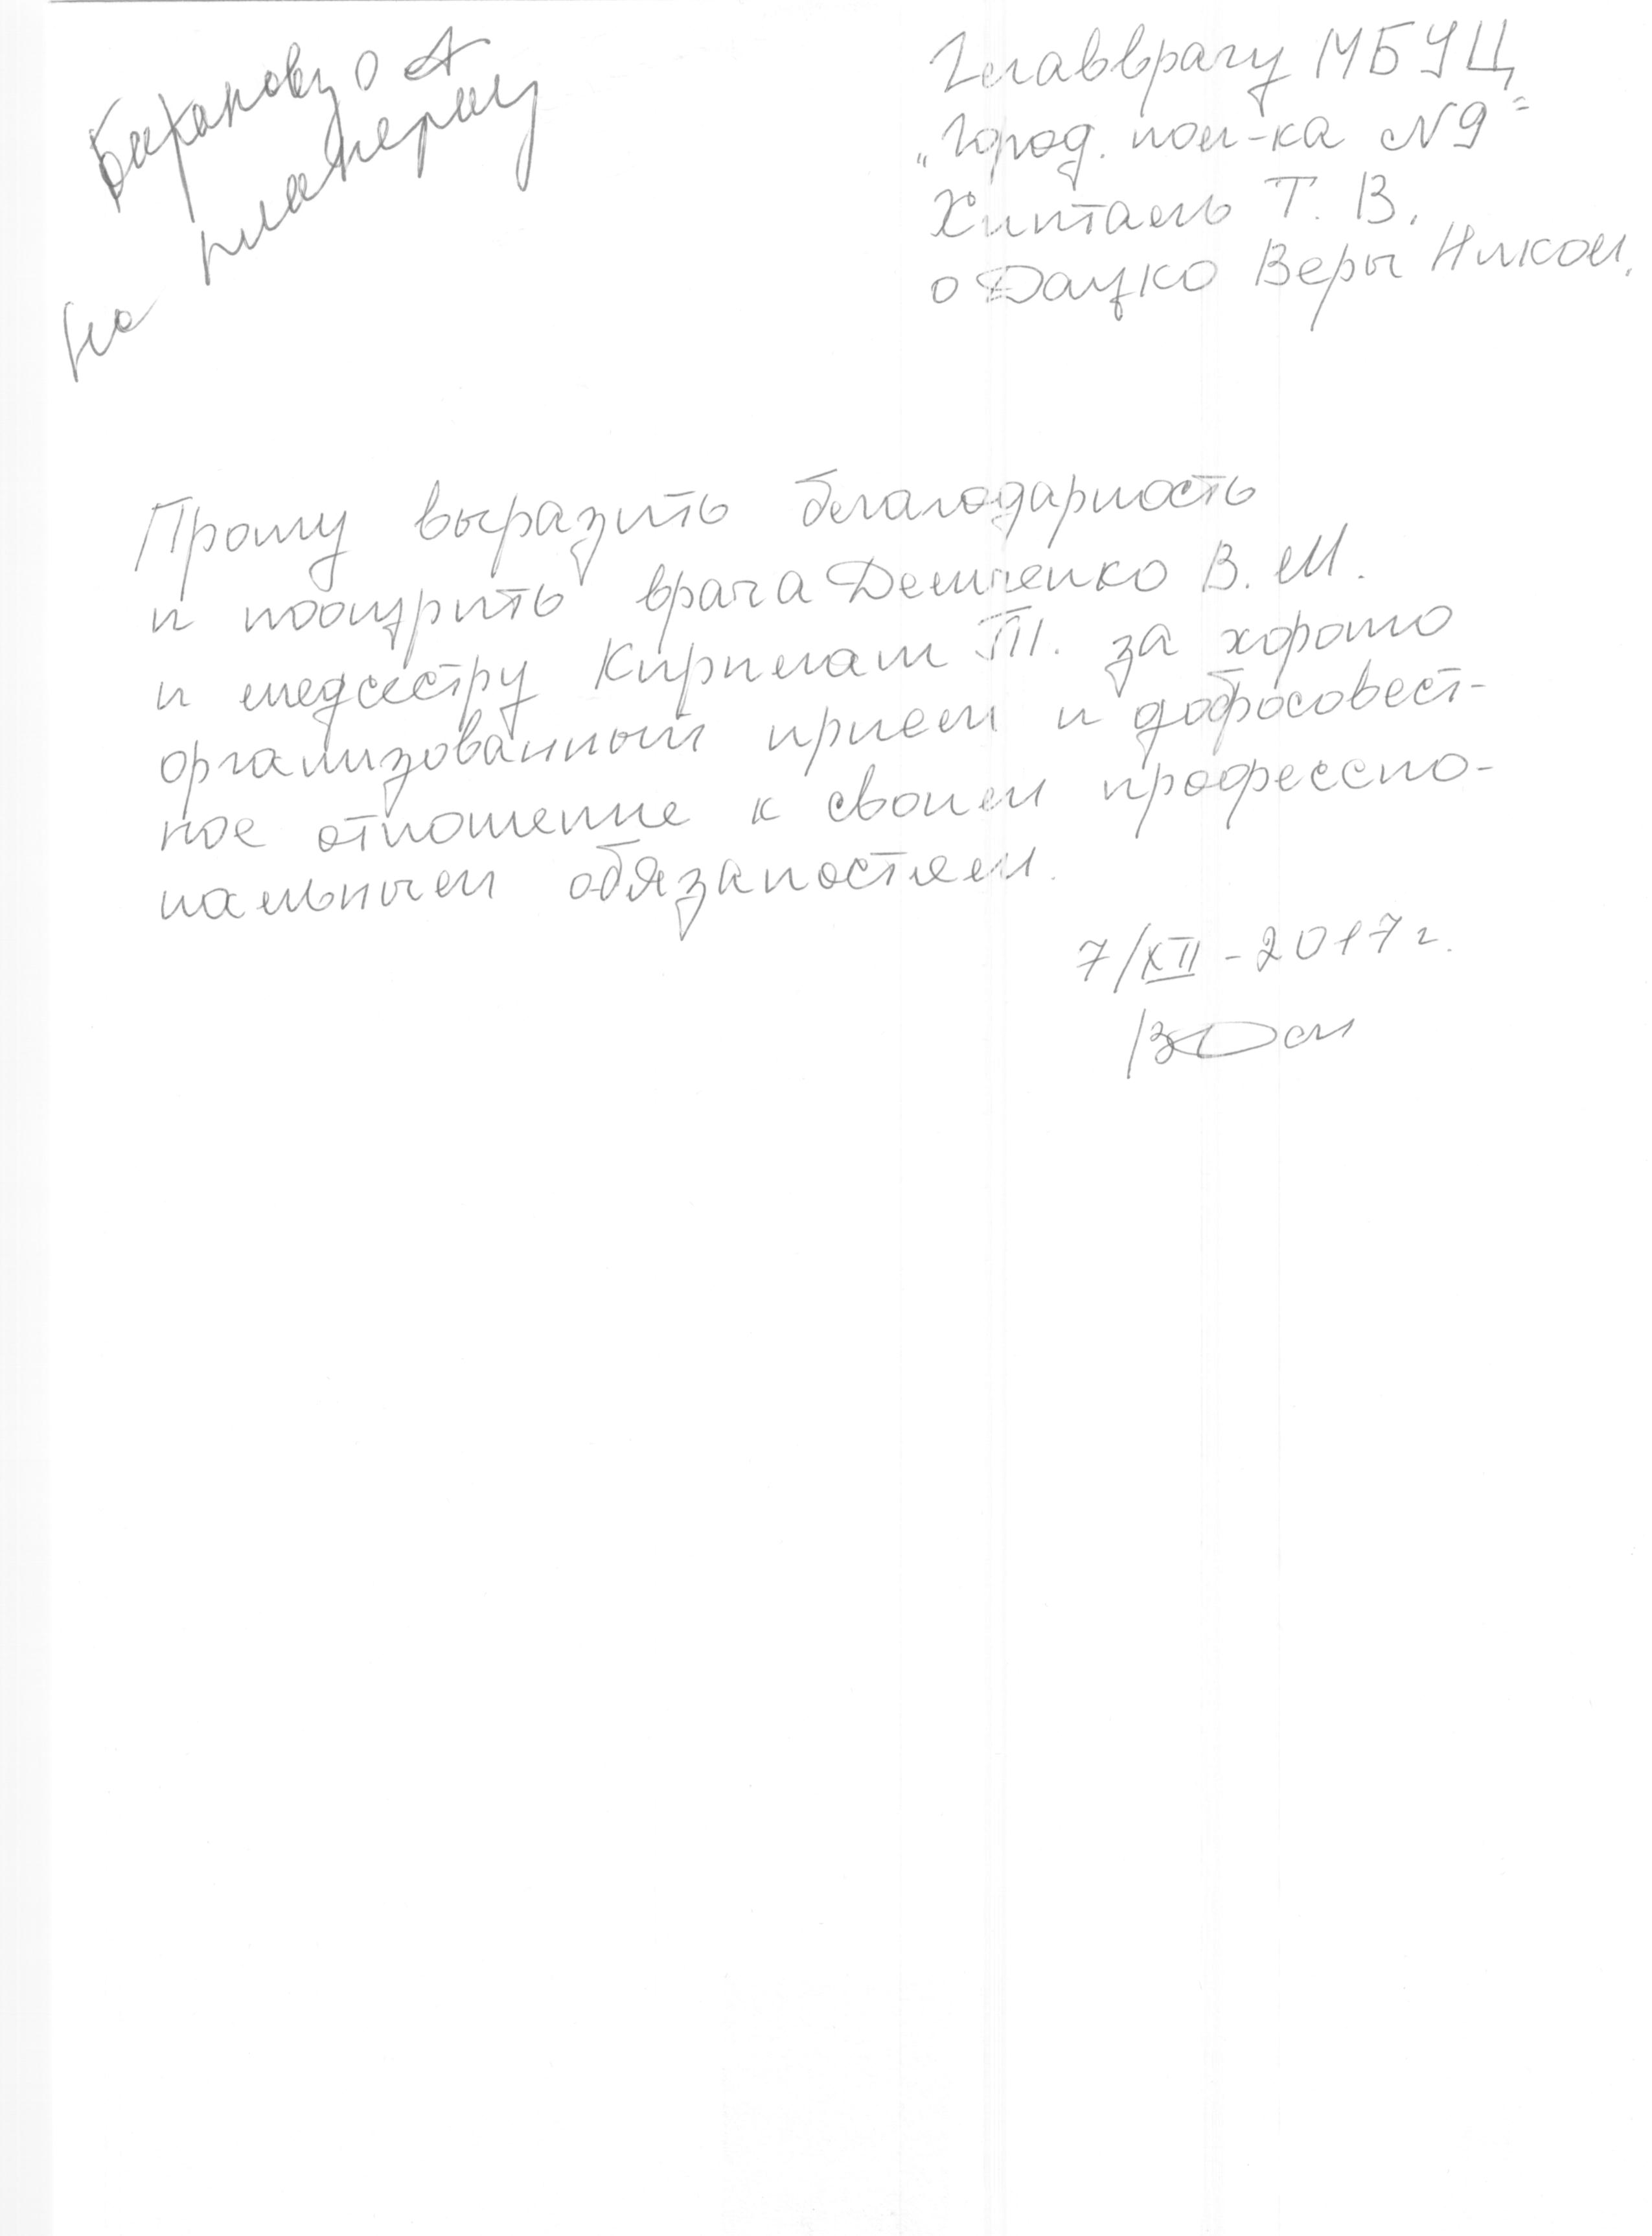 на планерку
Главврачу МБУЦ
„Город. пол-ка №9"
Хиталь Т. В.
о Дацко Веры Никол.
Прошу выразить благодарность
и поощрить врача Демченко В. М.
и медсестру Кирилаш Т. за хорошо
организованный прием и добросовест-
ное отношение к своим профессио-
нальным обязаностям.
7/XII - 2017 г.